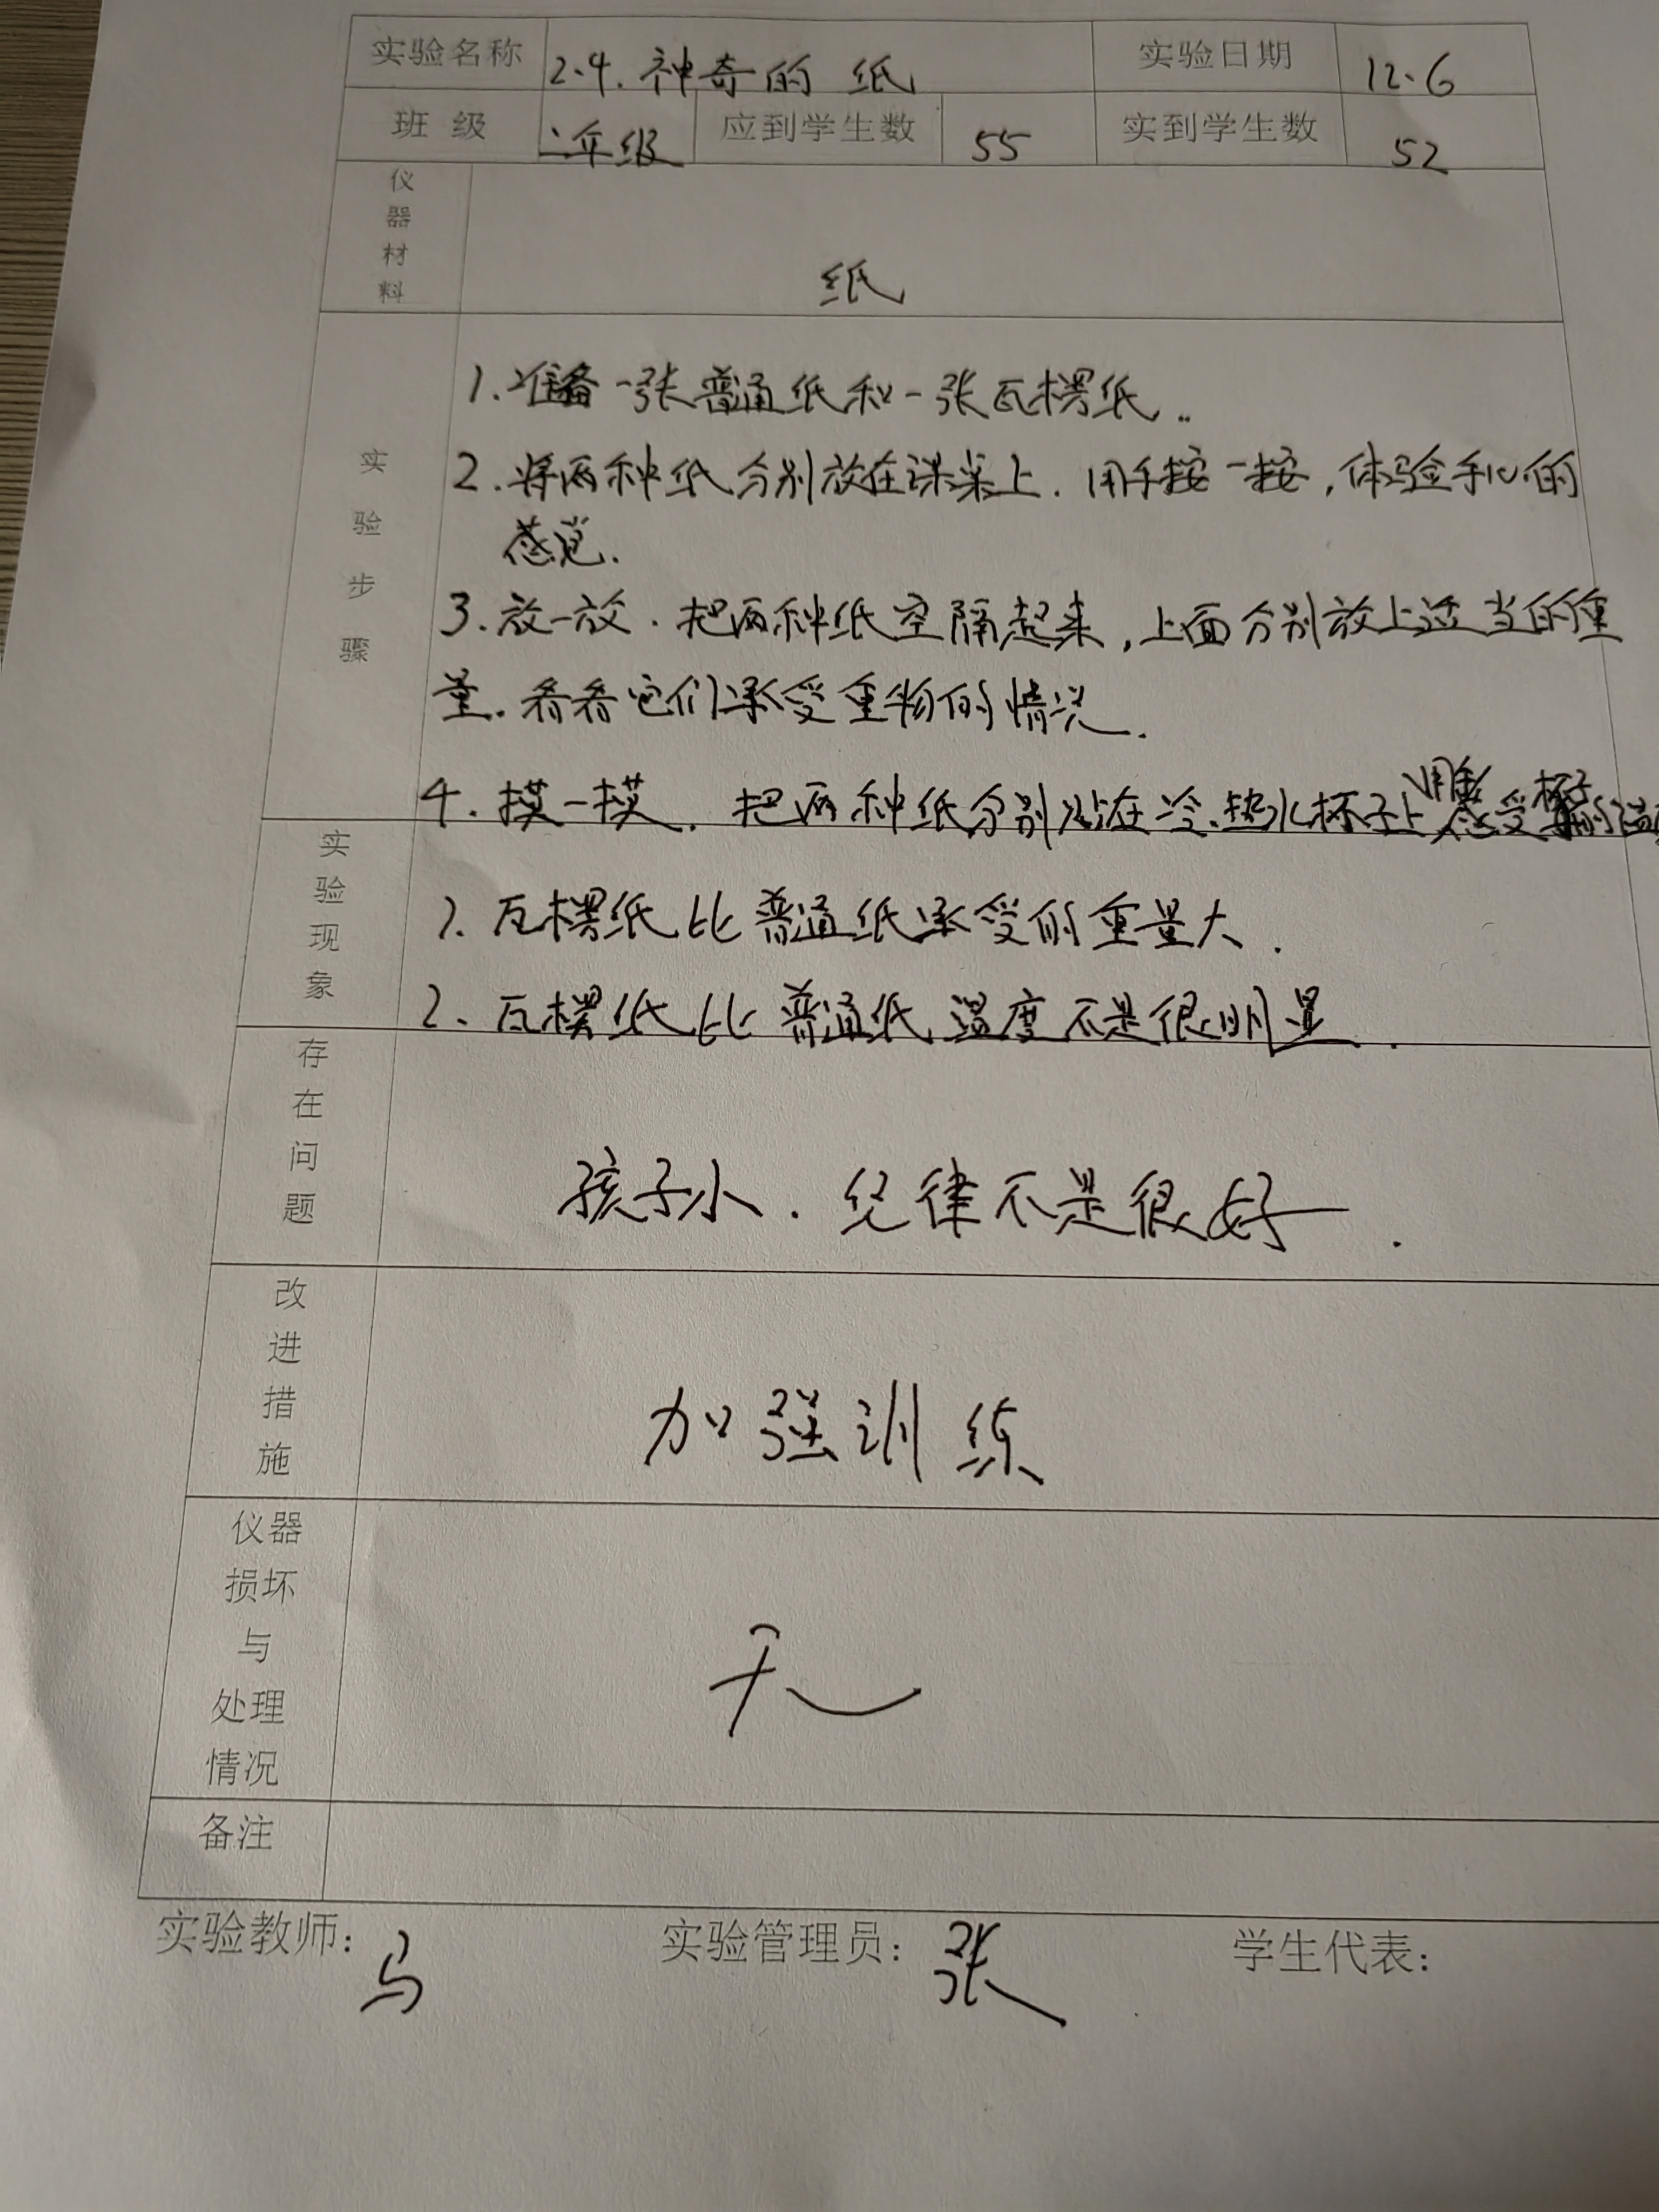 实验名称 2.4.神奇的纸 实验日期 12.6
班级 二年级 应到学生数 55 实到学生数 52
仪器材料 纸
实验步骤
1.准备一张普通纸和一张瓦楞纸..
2.将两种纸分别放在课桌上.用手按一按,体验手心的
感觉.
3.放一放.把两种纸空隔起来,上面分别放上适当的重
量.看看它们承受重物的情况.
4.摸一摸.把两种纸分别贴在冷.热水杯子上 用手感受杯子的
实验现象
1.瓦楞纸比普通纸承受的重量大.
2、瓦楞纸比普通纸温度不是很明显.
存在问题 孩子小.纪律不是很好.
改进措施 加强训练
仪器损坏与处理情况 无
备注
实验教师: 马 实验管理员: 张 学生代表: